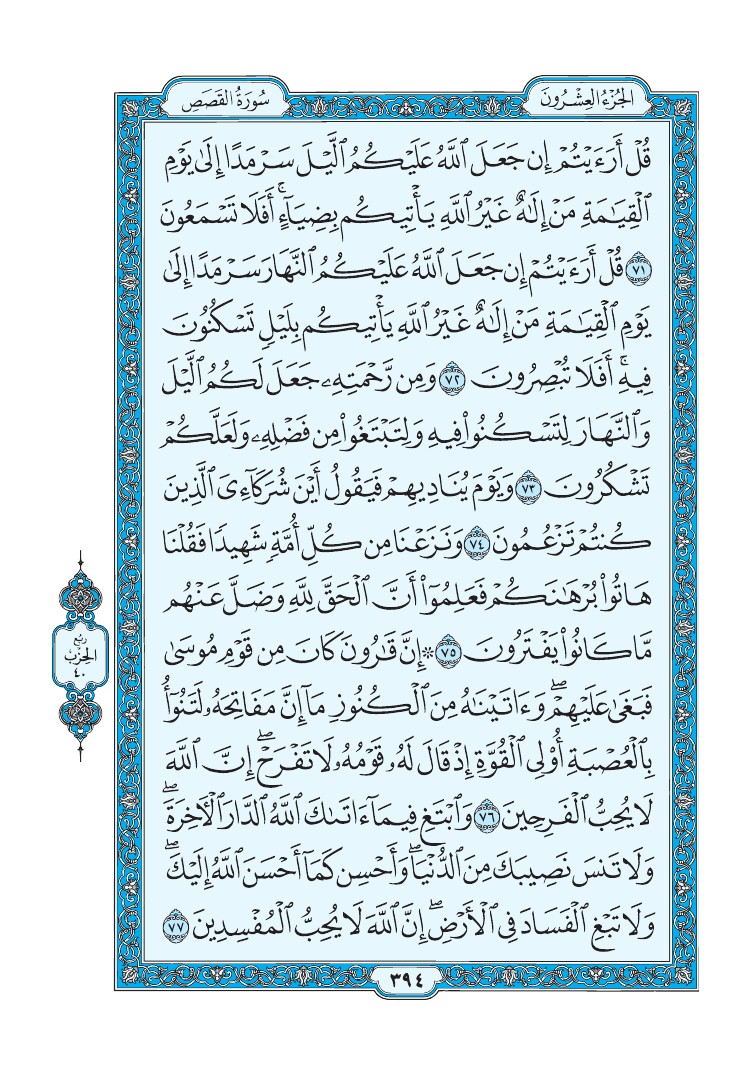 الجُزْءُ العِشْرُونَ
سُورَةُ القَصَصِ
قُلْ أَرَءَيْتُمْ إِن جَعَلَ ٱللَّهُ عَلَيْكُمُ ٱلَّيْلَ سَرْمَدًا إِلَىٰ يَوْمِ
ٱلْقِيَٰمَةِ مَنْ إِلَٰهٌ غَيْرُ ٱللَّهِ يَأْتِيكُم بِضِيَآءٍۚ أَفَلَا تَسْمَعُونَ
٧١ قُلْ أَرَءَيْتُمْ إِن جَعَلَ ٱللَّهُ عَلَيْكُمُ ٱلنَّهَارَ سَرْمَدًا إِلَىٰ
يَوْمِ ٱلْقِيَٰمَةِ مَنْ إِلَٰهٌ غَيْرُ ٱللَّهِ يَأْتِيكُم بِلَيْلٍ تَسْكُنُونَ
فِيهِۚ أَفَلَا تُبْصِرُونَ ٧٢ وَمِن رَّحْمَتِهِۦ جَعَلَ لَكُمُ ٱلَّيْلَ
وَٱلنَّهَارَ لِتَسْكُنُوا۟ فِيهِ وَلِتَبْتَغُوا۟ مِن فَضْلِهِۦ وَلَعَلَّكُمْ
تَشْكُرُونَ ٧٣ وَيَوْمَ يُنَادِيهِمْ فَيَقُولُ أَيْنَ شُرَكَآءِىَ ٱلَّذِينَ
كُنتُمْ تَزْعُمُونَ ٧٤ وَنَزَعْنَا مِن كُلِّ أُمَّةٍ شَهِيدًا فَقُلْنَا
هَاتُوا۟ بُرْهَٰنَكُمْ فَعَلِمُوٓا۟ أَنَّ ٱلْحَقَّ لِلَّهِ وَضَلَّ عَنْهُم
مَّا كَانُوا۟ يَفْتَرُونَ ٧٥ ۞ إِنَّ قَٰرُونَ كَانَ مِن قَوْمِ مُوسَىٰ
فَبَغَىٰ عَلَيْهِمْۖ وَءَاتَيْنَٰهُ مِنَ ٱلْكُنُوزِ مَآ إِنَّ مَفَاتِحَهُۥ لَتَنُوٓأُ
بِٱلْعُصْبَةِ أُو۟لِى ٱلْقُوَّةِ إِذْ قَالَ لَهُۥ قَوْمُهُۥ لَا تَفْرَحْۖ إِنَّ ٱللَّهَ
لَا يُحِبُّ ٱلْفَرِحِينَ ٧٦ وَٱبْتَغِ فِيمَآ ءَاتَىٰكَ ٱللَّهُ ٱلدَّارَ ٱلْءَاخِرَةَۖ
وَلَا تَنسَ نَصِيبَكَ مِنَ ٱلدُّنْيَاۖ وَأَحْسِن كَمَآ أَحْسَنَ ٱللَّهُ إِلَيْكَۖ
وَلَا تَبْغِ ٱلْفَسَادَ فِى ٱلْأَرْضِۖ إِنَّ ٱللَّهَ لَا يُحِبُّ ٱلْمُفْسِدِينَ ٧٧
رُبْعُ
الحِزْبِ
٤٠
٣٩٤